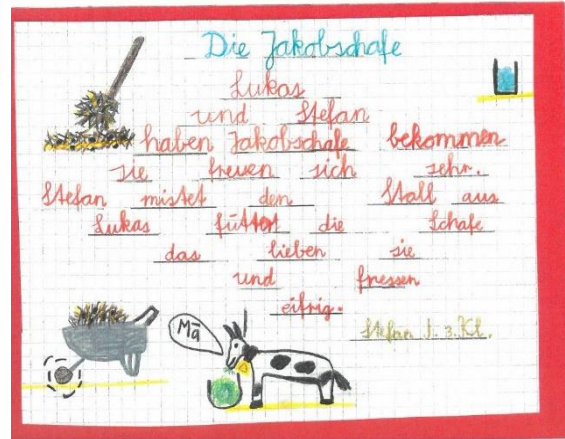 Die Jakobschafe
Lukas
und Stefan
haben Jakobschafe bekommen
sie freuen sich sehr.
Stefan mistet den Stall aus
Lukas füttert die Schafe
das lieben sie
und fressen
eifrig.
Mä
Stefan 3. Kl.